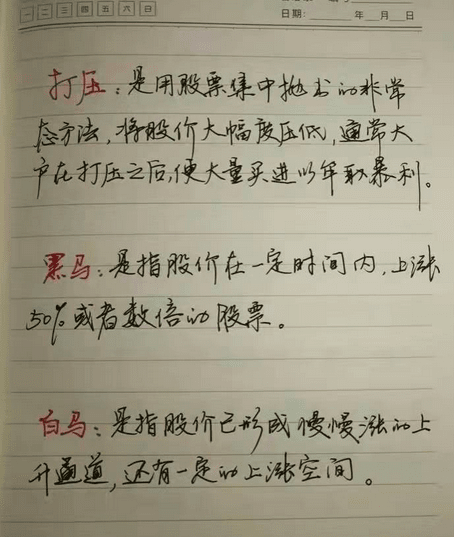 一 二 三 四 五 六 日
日期: 年 月 日
打压：是用股票集中抛出的非常
态方法，将股价大幅度压低，通常大
户在打压之后，便大量买进以牟取暴利。
黑马：是指股价在一定时间内，上涨
50%或者数倍的股票。
白马：是指股价已形成慢慢涨的上
升通道，还有一定的上涨空间。